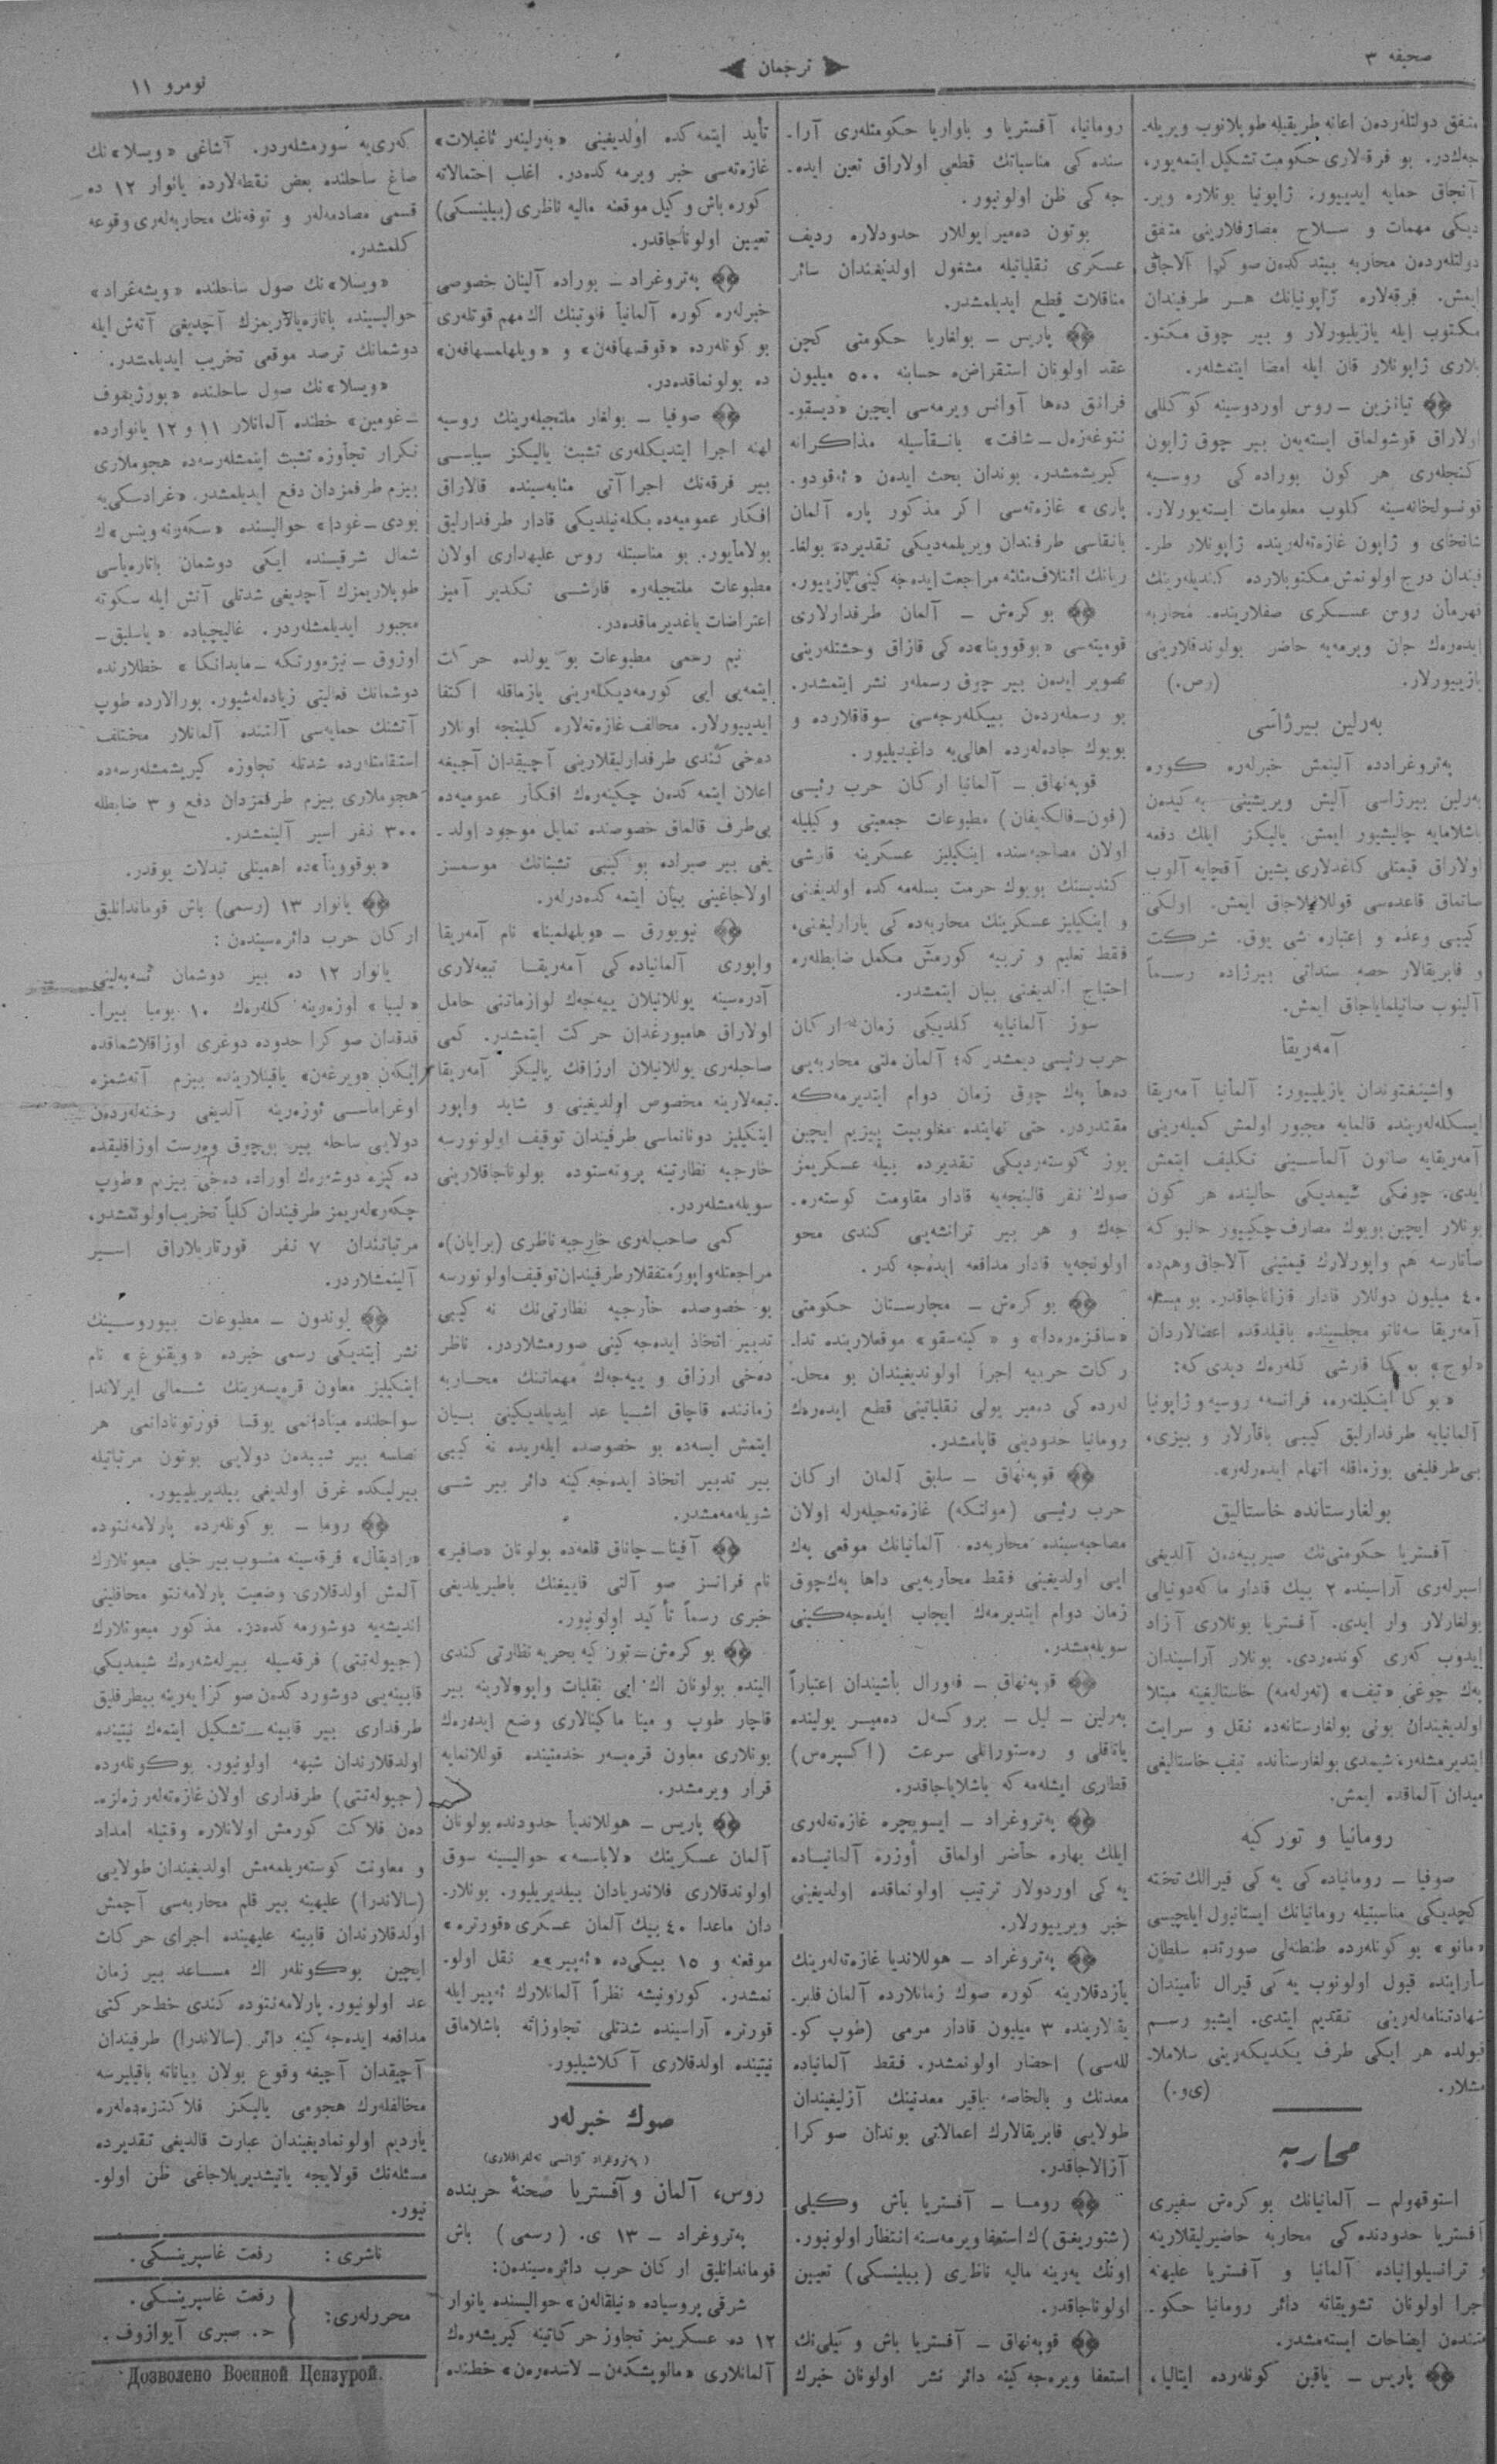 صحیفه ٣
ترجمان
نومرو ١١
متفق دولتلەردەن اعانه طریقیله طوپلانوب ویریله‌-
جه‌كدر. بو فرقه‌لاری حكومت تشكیل ایتمه‌یور،
آنجاق حمایه ایدییور. ژاپونیا بونلاره ویر-
دیكی مهمات و سلاح مصارفلارینی متفق
دولتلەردەن محاربه بیتدكدەن صوكرا آلاجاق
ایمش. فرقه‌لاره ژاپونیانك هر طرفیندان
مكتوب ایله یازیلیورلار و بیر چوق مكتو-
بلاری ژاپونلار قان ایله امضا ایتمشلەر.
تیانزین – روس اوردوسینه كوكللی
اولاراق قوشولماق ایستەیەن بیر چوق ژاپون
كنجلەری هر كون بورادەكی روسیه
قونسولخانه‌سینه كلوب معلومات ایسته‌یورلار.
شانخای و ژاپون غازەته‌لەرینده ژاپونلار طر-
فیندان درج اولونمش مكتوبلارده كندیلەرینك
قهرمان روس عسكری صفلارینده محاربه
ایدەرەك جان ویرمه‌یه حاضر بولوندقلارینی
یازییورلار. (رص.)
بەرلین بیرژاسی
پەتروغرادده آلینمش خبرلەره كوره
بەرلین بیرژاسی آلیش ویریشینی یه كیدەن
باشلامایه چالیشیور ایمش. یالیكز ایلك دفعه
اولاراق قیمتلی كاغدلاری پشین آقچایه آلوب
صاتماق قاعدەسی قوللانیلاجاق ایمش. اولكی
كیبی وعده و اعتباره شی یوق. شركت
و فابریقالار حصه سنداتی بیرژاده رسماً
آلینوب صاتیلمایاجاق ایمش.
آمەریقا
واشینغتوندان یازیلییور: آلمانیا آمەریقا
ایسكله‌لەرینده قالمایه مجبور اولمش كمیلەرینی
آمەریقایه صاتون آلماسینی تكلیف ایتمش
ایدی. چونكی شیمدیكی حالینده هر كون
بونلار ایچین بویوك مصارف چكییور حالبوكه
صاتارسه هم واپورلارك قیمتینی آلاجاق وهم‌ده
٤٠ میلیون دوللار قادار قازاناجاقدر. بو مسئله
آمەریقا سەناتو مجلسینده باقیلدقده اعضالاردان
«لوج» بوكا قارشی كلەرەك دیدی كه:
«بوكا اینكیلتەره، فرانسه، روسیه و ژاپونیا
آلمانیایه طرفدارلیق كیبی باقارلار و بیزی،
بی‌طرفلیغی بوزماقله اتهام ایدەرلەر».
بولغارستانده خاستالیق
آفستریا حكومتی‌نك صیربیه‌دەن آلدیغی
اسیرلەری آراسینده ٢ بیك قادار ماكەدونیالی
بولغارلار وار ایدی. آفستریا بونلاری آزاد
ایدوب كەری كوندەردی. بونلار آراسیندان
پەك چوغی «تیف» (تەرلەمه) خاستالیغینه مبتلا
اولدیغیندان بونی بولغارستانه‌ده نقل و سرایت
ایتدیرمشلەر، شیمدی بولغارستانده تیف خاستالیغی
میدان آلماقده ایمش.
رومانیا و توركیه
صوفیا – رومانیادەكی یەكی قیرالك تخته
كچدیكی مناسبتیله رومانیانك ایستانبول ایلچیسی
«مانو» بو كونلەرده طنطنه‌لی صورتده سلطان
سارایینده قبول اولونوب یەكی قیرال نامیندان
شهادتنامه‌لەرینی تقدیم ایتدی. ایشبو رسم
قبولده هر ایكی طرف یكدیكەرینی سلاملا-
مشلار. (ی‌و.)
محاربه
استوقهولم – آلمانیانك بوكرەش سفیری
آفستریا حدودندەكی محاربه حاضیرلیقلارینه
و ترانسیلوانیاده آلمانیا و آفستریا علیهنه
اجرا اولونان تشویقاته دائر رومانیا حكو-
متندەن ایضاحات ایستەمشدر.
پاریس – یاقین كونلەرده ایتالیا،
رومانیا، آفستریا و باواریا حكومتلەری آرا-
سندەكی مناسباتك قطعی اولاراق تعین ایده-
جه‌كی ظن اولونیور.
بوتون دەمیریوللار حدودلاره ردیف
عسكری نقلیاتیله مشغول اولدیغیندان سائر
مناقلات قطع ایدیلمشدر.
پاریس – بولغاریا حكومتی كچن
عقد اولونان استقراض حسابنه ٥٠٠ میلیون
فرانق دەها آوانس ویرمه‌سی ایچین «دیسقو-
نتوغەزەل – شافت» بانقاسیله مذاكراته
كیریشمشدر. بوندان بحث ایدەن «ئەقودو-
پاری» غازەته‌سی اكر مذكور پاره آلمان
بانقاسی طرفندان ویریلمه‌دیكی تقدیرده بولغا-
ریانك ائتلاف مثلثه مراجعت ایدەجه‌كینی یازییور.
بوكرەش – آلمان طرفدارلاری
قومیته‌سی «بوقووینا»دەكی قازاق وحشتلەرینی
تصویر ایدەن بیر چوق رسملەر نشر ایتمشدر.
بو رسملەردەن بیكلەرجه‌سی سوقاقلارده و
بویوك جادەلەرده اهالی‌یه داغیدیلیور.
قوپەنهاق – آلمانیا اركان حرب رئیسی
(فون–فالكەیفان) مطبوعات جمعیتی وكیلیله
اولان مصاحبه‌سنده اینكیلیز عسكرینه قارشی
كندیسنك بویوك حرمت بسله‌مه‌كده اولدیغنی
و اینكیلیز عسكرینك محاربه‌دەكی یارارلیغنی،
فقط تعلیم و تربیه كورمش مكمل ضابطلەره
احتیاج اولدیغنی بیان ایتمشدر.
سوز آلمانیایه كلدیكی زمان اركان
حرب رئیسی دیمشدر كه: آلمان ملتی محاربه‌یی
دەها پەك چوق زمان دوام ایتدیرمه‌كه
مقتدردر. حتی نهایتده مغلوبیت بیزیم ایچین
یوز كوستەردیكی تقدیرده بیله عسكریمز
صوك نفر قالینجه‌یه قادار مقاومت كوستەره-
جه‌ك و هر بیر ترانشه‌یی كندی محو
اولونجه‌یه قادار مدافعه ایدەجه‌كدر.
بوكرەش – مجارستان حكومتی
«ساقزەرەدا» و «كینەسقو» موقعلارینده تدا-
ركات حربیه اجرا اولوندیغیندان بو محل-
لەردەكی دەمیر یولی نقلیاتینی قطع ایدەرەك
رومانیا حدودینی قاپامشدر.
قوپەنهاق – سابق آلمان اركان
حرب رئیسی (مولتكه) غازەته‌جیلەرله اولان
مصاحبه‌سینده محاربه‌ده آلمانیانك موقعی پەك
ایی اولدیغینی فقط محاربه‌یی داها پەك‌چوق
زمان دوام ایتدیرمەك ایجاب ایدەجه‌كینی
سویلەمشدر.
قوپەنهاق – فەورال باشیندان اعتباراً
بەرلین – لیل – بروكسەل دەمیر یولینده
یاتاقلی و رەستورانلی سرعت (اكسپرەس)
قطاری ایشله‌مه‌كه باشلایاجاقدر.
پەتروغراد – ایسویچره غازەته‌لەری
ایلك بهاره حاضر اولماق اوزره آلمانیاده
یەكی اوردولار ترتیب اولونماقده اولدیغینی
خبر ویرییورلار.
پەتروغراد – هوللاندیا غازەته‌لەرینك
یازدقلارینه كوره صوك زمانلارده آلمان فابر-
یقالارینده ٣ میلیون قادار مرمی (طوپ كو-
لله‌سی) احضار اولونمشدر. فقط آلمانیاده
معدنك و بالخاصه باقیر معدنینك آزلیغیندان
طولایی فابریقالارك اعمالاتی بوندان صوكرا
آزالاجاقدر.
روما – آفستریا باش وكیلی
(شتوریغق)ك استعفا ویرمه‌سنه انتظار اولونیور.
اونك یەرینه مالیه ناظری (بیلینسكی) تعیین
اولوناجاقدر.
قوپەنهاق – آفستریا باش وكیلی‌نك
استعفا ویرەجه‌كینه دائر نشر اولونان خبرك
تأید ایتمه‌كده اولدیغینی «بەرلینەر تاغبلات»
غازەته‌سی خبر ویرمه‌كدەدر. اغلب احتمالاته
كوره باش وكیل موقعنه مالیه ناظری (بیلینسكی)
تعیین اولوناجاقدر.
پەتروغراد – بوراده آلینان خصوصی
خبرلەره كوره آلمانیا فلوتینك اك مهم قوتلەری
بو كونلەرده «قوقسهافەن» و «ویلهلمسهافەن»
ده بولونماقدەدر.
صوفیا – بولغار ملتجیلەرینك روسیه
لهنه اجرا ایتدیكلەری تشبث یالیكز سیاسی
بیر فرقه‌نك اجراآتی مثابه‌سینده قالاراق
افكار عمومیه‌ده بكله‌نیلدیكی قادار طرفدارلیق
بولامایور. بو مناسبتله روس علیهداری اولان
مطبوعات ملتجیلەره قارشی تكدیر آمیز
اعتراضات یاغدیرماقدەدر.
نیم رسمی مطبوعات بو یولده حركات
ایتمه‌یی ایی كورمه‌دیكلەرینی یازماقله اكتفا
ایدییورلار. مخالف غازەته‌لاره كلینجه اونلار
دەخی كندی طرفدارلیقلارینی آچیقدان آچیغه
اعلان ایتمه‌كدەن چكینەرەك افكار عمومیه‌ده
بی‌طرف قالماق خصوصنده تمایل موجود اولد-
یغی بیر صیراده بو كیبی تشبثاتك موسمسز
اولاجاغینی بیان ایتمه‌كدەدرلەر.
نیویورق – «ویلهلمینا» نام آمەریقا
واپوری آلمانیادەكی آمەریقا تبعه‌لاری
آدرەسینه یوللانیلان ییه‌جه‌ك لوازماتنی حامل
اولاراق هامبورغدان حركت ایتمشدر. كمی
صاحبلەری یوللانیلان ارزاقك یالیكز آمەریقا
تبعه‌لارینه مخصوص اولدیغینی و شاید واپور
اینكیلیز دونانماسی طرفیندان توقیف اولونورسه
خارجیه نظارتینه پروتەستوده بولوناجاقلارینی
سویلەمشلەردر.
كمی صاحب‌لەری خارجیه ناظری (برایان)ه
مراجعتله واپور متفقلار طرفیندان توقیف اولونورسه
بو خصوصده خارجیه نظارتی‌نك نه كیبی
تدبیر اتخاذ ایدەجه‌كینی صورمشلاردر. ناظر
دەخی ارزاق و ییه‌جه‌ك مهماتنك محاربه
زماننده قاچاق اشیا عد ایدیلدیكینی بیان
ایتمش ایسه‌ده بو خصوصده ایلەریده نه كیبی
بیر تدبیر اتخاذ ایدەجه‌كینه دائر بیر شی
سویلەمەمشدر.
آفینا – چاناق قلعه‌ده بولونان «صافیر»
نام فرانسز صو آلتی قاییغنك باطیریلدیغی
خبری رسماً تأكید اولونیور.
بوكرەش – توركیه بحریه نظارتی كندی
الینده بولونان اك ایی نقلیات واپورلارینه بیر
قاچار طوپ و مینا ماكینالاری وضع ایدەرەك
بونلاری معاون قرەیسەر خدمتینده قوللانمایه
قرار ویرمشدر.
پاریس – هوللاندیا حدودنده بولونان
آلمان عسكرینك «لاباسه» حوالیسینه سوق
اولوندقلاری فلاندریادان بیلدیریلیور. بونلار-
دان ماعدا ٤٠ بیك آلمان عسكری «قورتره»
موقعنه و ١٥ بیكی‌ده «ئەپیر»ه نقل اولو-
نمشدر. كورونیشه نظراً آلمانلارك ئەپیر ایله
قورتره آراسینده شدتلی تجاوزاته باشلاماق
نیتینده اولدقلاری آكلاشیلیور.
صوك خبرلەر
(پەتروغراد آژانسی تەلغرافلاری)
روس، آلمان و آفستریا صحنۀ حربنده
پەتروغراد – ١٣ ی. (رسمی) باش
قوماندانلیق اركان حرب دائرەسیندەن:
شرقی پروسیاده «پیلقالەن» حوالیسنده یانوار
١٢ ده عسكریمز تجاوز حركاتینه كیریشەرەك
آلمانلاری «مالویشكەن – لاسدەرەن» خطنده
كەری‌یه سورمشلەردر. آشاغی «ویسلا»نك
صاغ ساحلنده بعض نقطه‌لارده یانوار ١٢ ده
قسمی مصادمه‌لەر و توفەنك محاربه‌لەری وقوعه
كلمشدر.
«ویسلا»نك صول ساحلنده «ویشەغراد»
حوالیسینده باتارەیالاریمزك آچدیغی آتەش ایله
دوشمانك ترصد موقعی تخریب ایدیلمشدر.
«ویسلا»نك صول ساحلنده «بورژیموف
– غومین» خطنده آلمانلار ١١ و ١٢ یانوارده
تكرار تجاوزه تشبث ایتمشلەرسه‌ده هجوملاری
بیزم طرفمزدان دفع ایدیلمشدر. «غرادسكی‌یه
بودی – غودا» حوالیسنده «سكەرنه‌ویتس»ك
شمال شرقیسنده ایكی دوشمان باتارەیاسی
طوپلاریمزك آچدیغی شدتلی آتش ایله سكوته
مجبور ایدیلمشلەردر. غالیچیاده «یاسلیق –
اوژوق – نیژەورتكه – مایدانكا» خطلارنده
دوشمانك فعالیتی زیادەلەشیور. بورالارده طوپ
آتشنك حمایه‌سی آلتنده آلمانلار مختلف
استقامتلەرده شدتله تجاوزه كیریشمشلەرسه‌ده
هجوملاری بیزم طرفمزدان دفع و ٣ ضابطله
٣٠٠ نفر اسیر آلینمشدر.
«بوقووینا»ده اهمیتلی تبدلات یوقدر.
یانوار ١٣ (رسمی) باش قوماندانلیق
اركان حرب دائرەسیندەن:
یانوار ١٢ ده بیر دوشمان تسەپەلینی
«لیبا» اوزەرینه كلەرەك ١٠ بومبا بیرا-
قدقدان صوكرا حدوده دوغری اوزاقلاشماقده
ایكەن «ویرغەن» یاقینلارینده بیزم آتەشمزه
اوغراماسی ئوزەرینه آلدیغی رخنه‌لەردەن
دولایی ساحله بیر بوچوق وەرست اوزاقلیقده
دەكیزه دوشەرەك اوراده دەخی بیزیم «طوپ
چكەر»لەریمز طرفیندان كلیاً تخریب اولونمشدر،
مرتباتندان ٧ نفر قورتاریلاراق اسیر
آلینمشلاردر.
لوندون – مطبوعات بیوروسینك
نشر ایتدیكی رسمی خبرده «ویقنوغ» نام
اینكیلیز معاون قرەیسەرینك شمالی ایرلاندا
سواحلنده میناداتمی یوقسا فورتونادانمی هر
نصلسه بیر سببدەن دولایی بوتون مرتباتیله
بیرلیكده غرق اولدیغی بیلدیریلییور.
روما – بو كونلەرده پارلامەنتوده
«رادیقال» فرقه‌سینه منسوب بیر خیلی مبعوثلارك
آلمش اولدقلاری وضعیت پارلامەنتو محافلینی
اندیشه‌یه دوشورمه‌كدەدر. مذكور مبعوثلارك
(جیولەتتی) فرقه‌سیله بیرلەشەرەك شیمدیكی
قابینه‌یی دوشوردكدەن صوكرا یەرینه بیطرفلیق
طرفداری بیر قابینه – تشكیل ایتمەك نیتینده
اولدقلارندان شبهه اولونیور. بو كونلەرده
(جیولەتتی) طرفداری اولان غازەته‌لەر زەلزه-
دەن فلاكت كورمش اولانلاره وقتیله امداد
و معاونت كوستەریلمەمش اولدیغیندان طولایی
(سالاندرا) علیهینه بیر قلم محاربه‌سی آچمش
اولدقلارندان قابینه علیهینده اجرای حركات
ایچین بو كونلەر اك مساعد بیر زمان
عد اولونیور. پارلامەنتوده كندی خط حركتی
مدافعه ایدەجه‌كینه دائر (سالاندرا) طرفیندان
آچیقدان آچیغه وقوع بولان بیاناته باقیلیرسه
مخالفلەرك هجومی یالیكز فلاكتزدەلەره
یاردیم اولونمادیغیندان عبارت قالدیغی تقدیرده
مسئله‌نك قولایجه یاتیشدیریلاجاغی ظن اولو-
نیور.
ناشری: رفعت غاسپرینسكی.
محررلەری: رفعت غاسپرینسكی.
ح. صبری آیوازوف.
Дозволено Военной Цензурой.